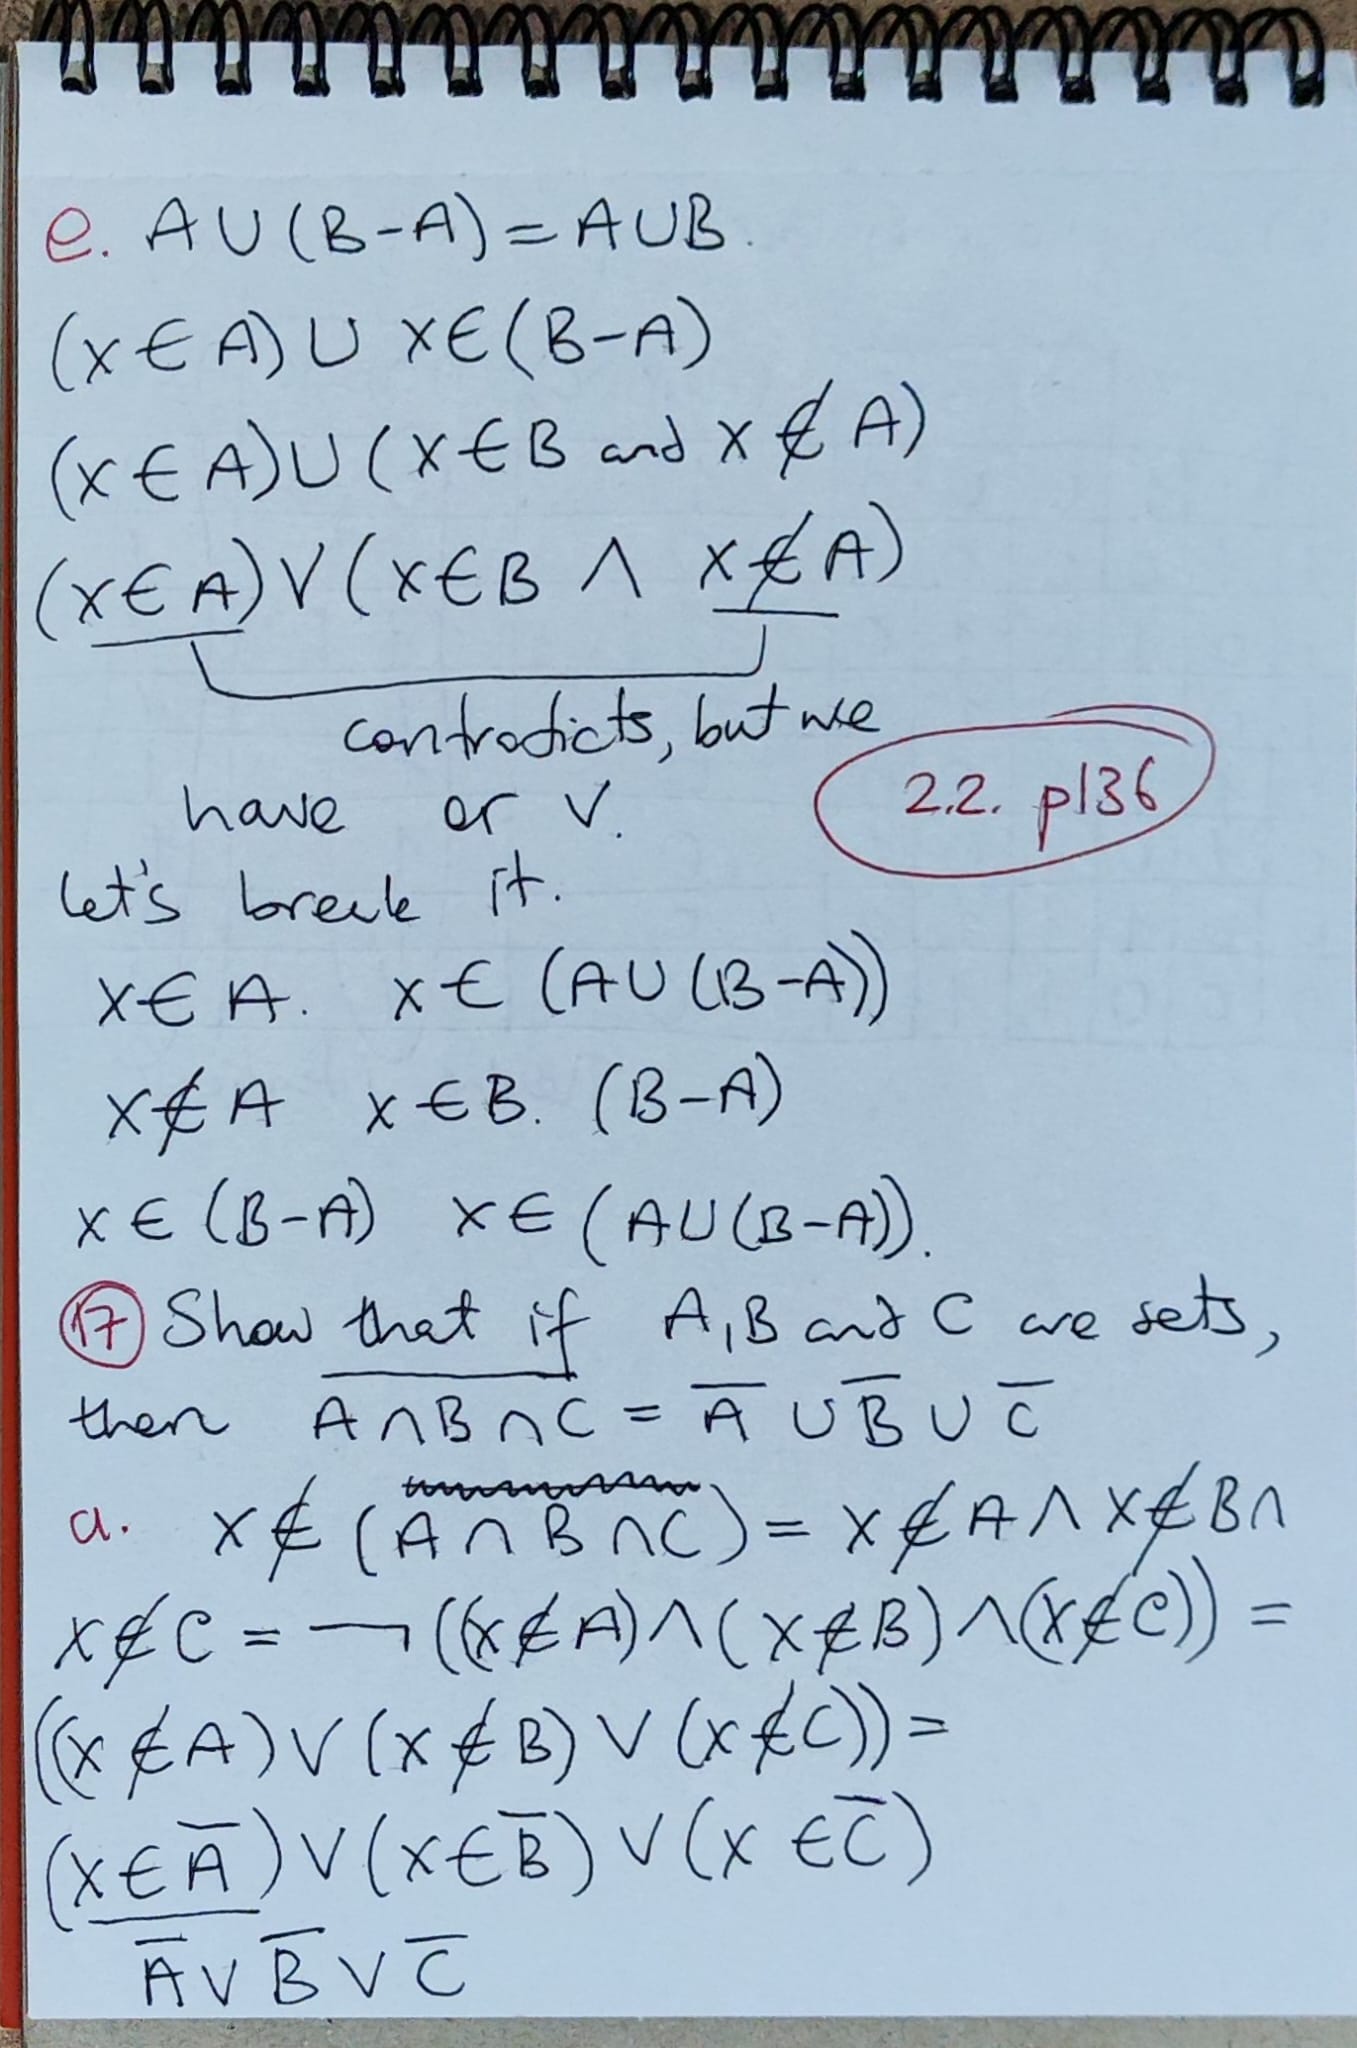 e. A ∪ (B-A) = A∪B.
(x ∈ A) ∪ x∈(B-A)
(x ∈ A)∪(x∈B and x ∉ A)
(x∈A) ∨ (x∈B ∧ x∉A)
contradicts, but we
have or ∨.
2.2. p136
Let's break it.
x∈A. x∈ (A∪(B-A))
x∉A x∈B. (B-A)
x∈(B-A) x∈(A∪(B-A)).
17 Show that if A, B and C are sets,
then \overline{A∩B∩C} = \overline{A} ∪ \overline{B} ∪ \overline{C}
a. x∉(A∩B∩C) = x∉A ∧ x∉B∩
x∉C = ¬((x∉A)∧(x∉B)∧(x∉C)) =
((x∉A)∨(x∉B)∨(x∉C)) =
(x∈\overline{A})∨(x∈\overline{B})∨(x∈\overline{C})
\overline{A}∨\overline{B}∨\overline{C}